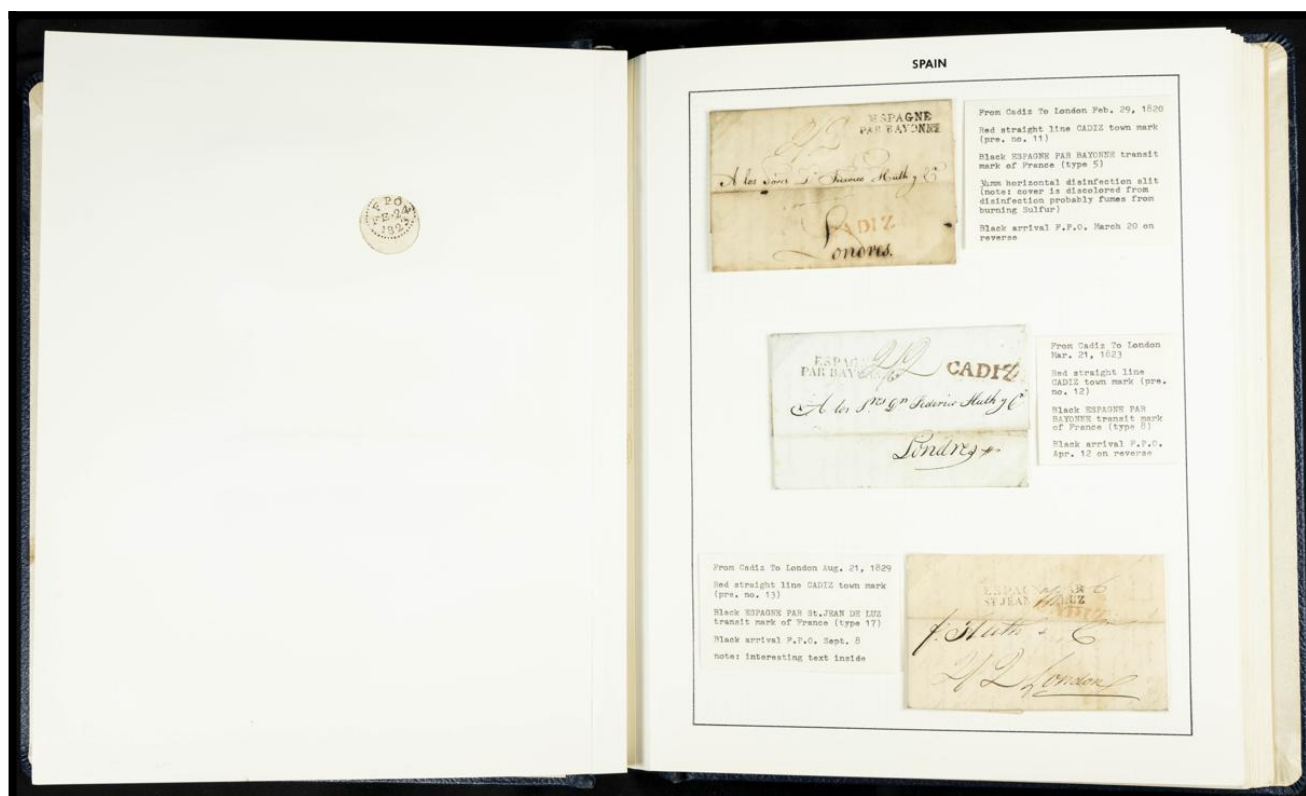 F P O
1829
SPAIN
ESPAGNE
PAR BAYONNE
2/2
A los Sores Dn Federico Huth y Ca
CADIZ
Londres.
From Cadiz To London Feb. 29, 1820
Red straight line CADIZ town mark
(pre. no. 11)
Black ESPAGNE PAR BAYONNE transit
mark of France (type 5)
3½mm horizontal disinfection slit
(note: cover is discolored from
disinfection probably fumes from
burning Sulfur)
Black arrival F.P.O. March 20 on
reverse
ESPAGNE
PAR BAYONNE
2/2
CADIZ
A los Sres Dn Federico Huth y Ca
Londres
From Cadiz To London
Mar. 21, 1823
Red straight line
CADIZ town mark (pre.
no. 12)
Black ESPAGNE PAR
BAYONNE transit mark
of France (type 8)
Black arrival F.P.O.
Apr. 12 on reverse
From Cadiz To London Aug. 21, 1829
Red straight line CADIZ town mark
(pre. no. 13)
Black ESPAGNE PAR St.JEAN DE LUZ
transit mark of France (type 17)
Black arrival F.P.O. Sept. 8
note: interesting text inside
ESPAGNE PAR
ST JEAN LUZ
F. Huth & Co
2/2 London